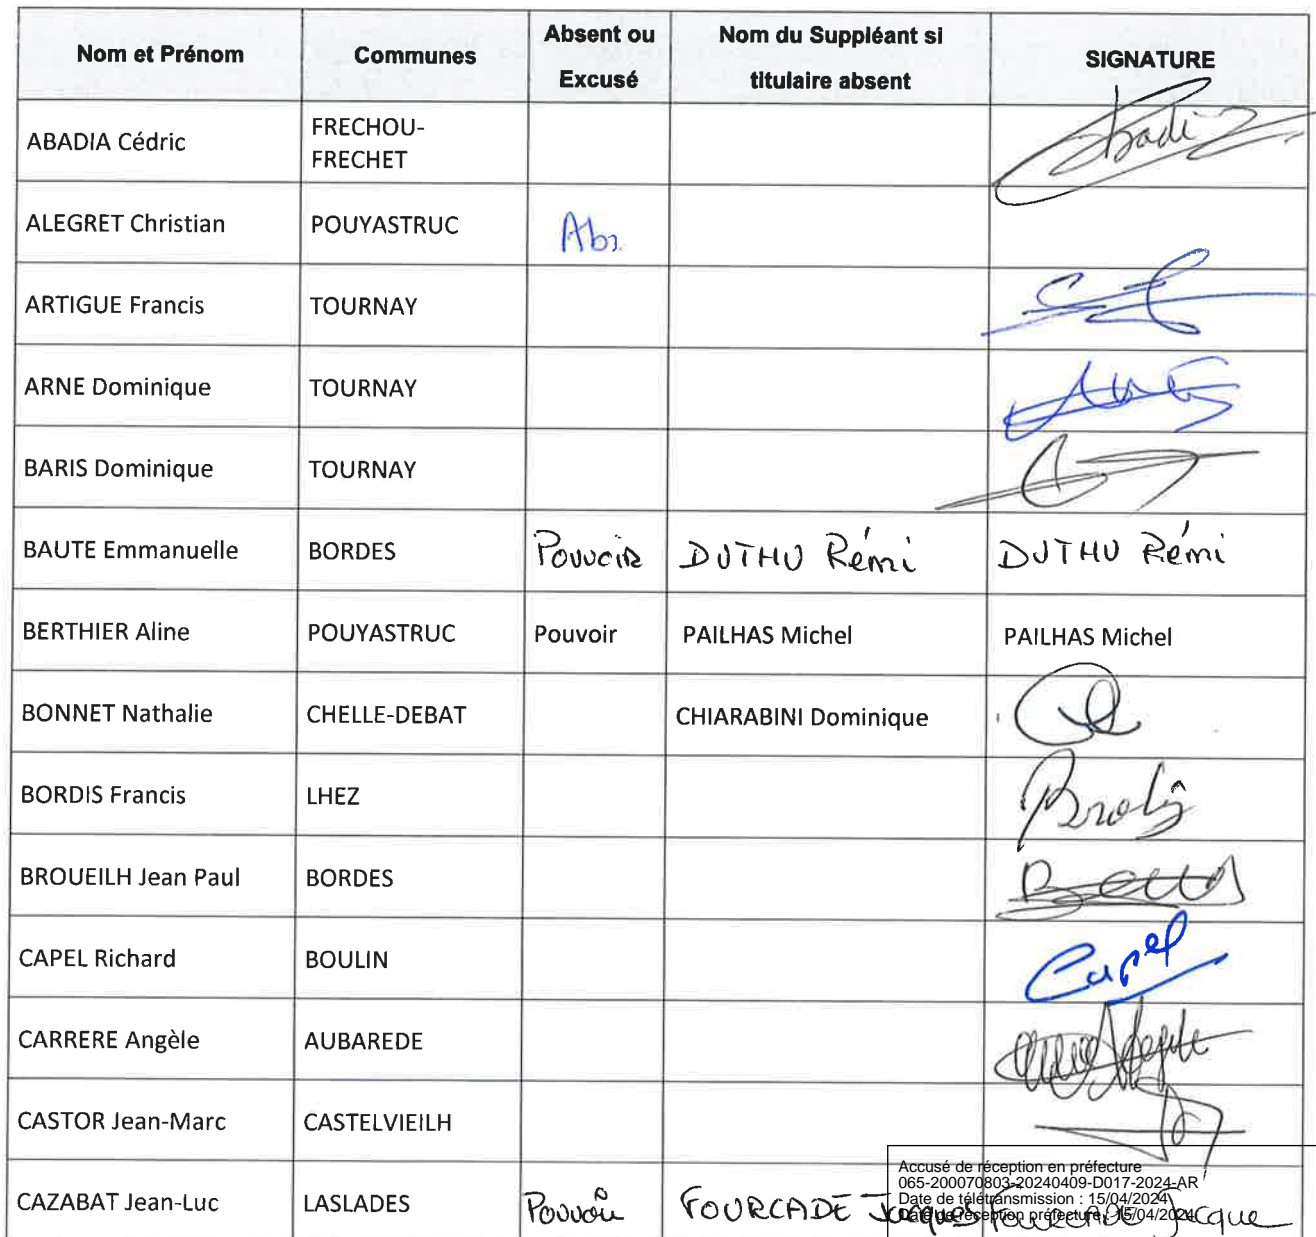 Nom et Prénom Communes Absent ou Excusé Nom du Suppléant si titulaire absent SIGNATURE
ABADIA Cédric FRECHOU-FRECHET
ALEGRET Christian POUYASTRUC Abs.
ARTIGUE Francis TOURNAY
ARNE Dominique TOURNAY
BARIS Dominique TOURNAY
BAUTE Emmanuelle BORDES Pouvoir DUTHU Rémi DUTHU Rémi
BERTHIER Aline POUYASTRUC Pouvoir PAILHAS Michel PAILHAS Michel
BONNET Nathalie CHELLE-DEBAT CHIARABINI Dominique
BORDIS Francis LHEZ
BROUEILH Jean Paul BORDES
CAPEL Richard BOULIN Capel
CARRERE Angèle AUBAREDE
CASTOR Jean-Marc CASTELVIEILH
CAZABAT Jean-Luc LASLADES Pouvoir FOURCADE Jacques FOURCADE Jacque
Accusé de réception en préfecture
065-200070803-20240409-D017-2024-AR
Date de télétransmission : 15/04/2024
Date de réception préfecture : 15/04/2024